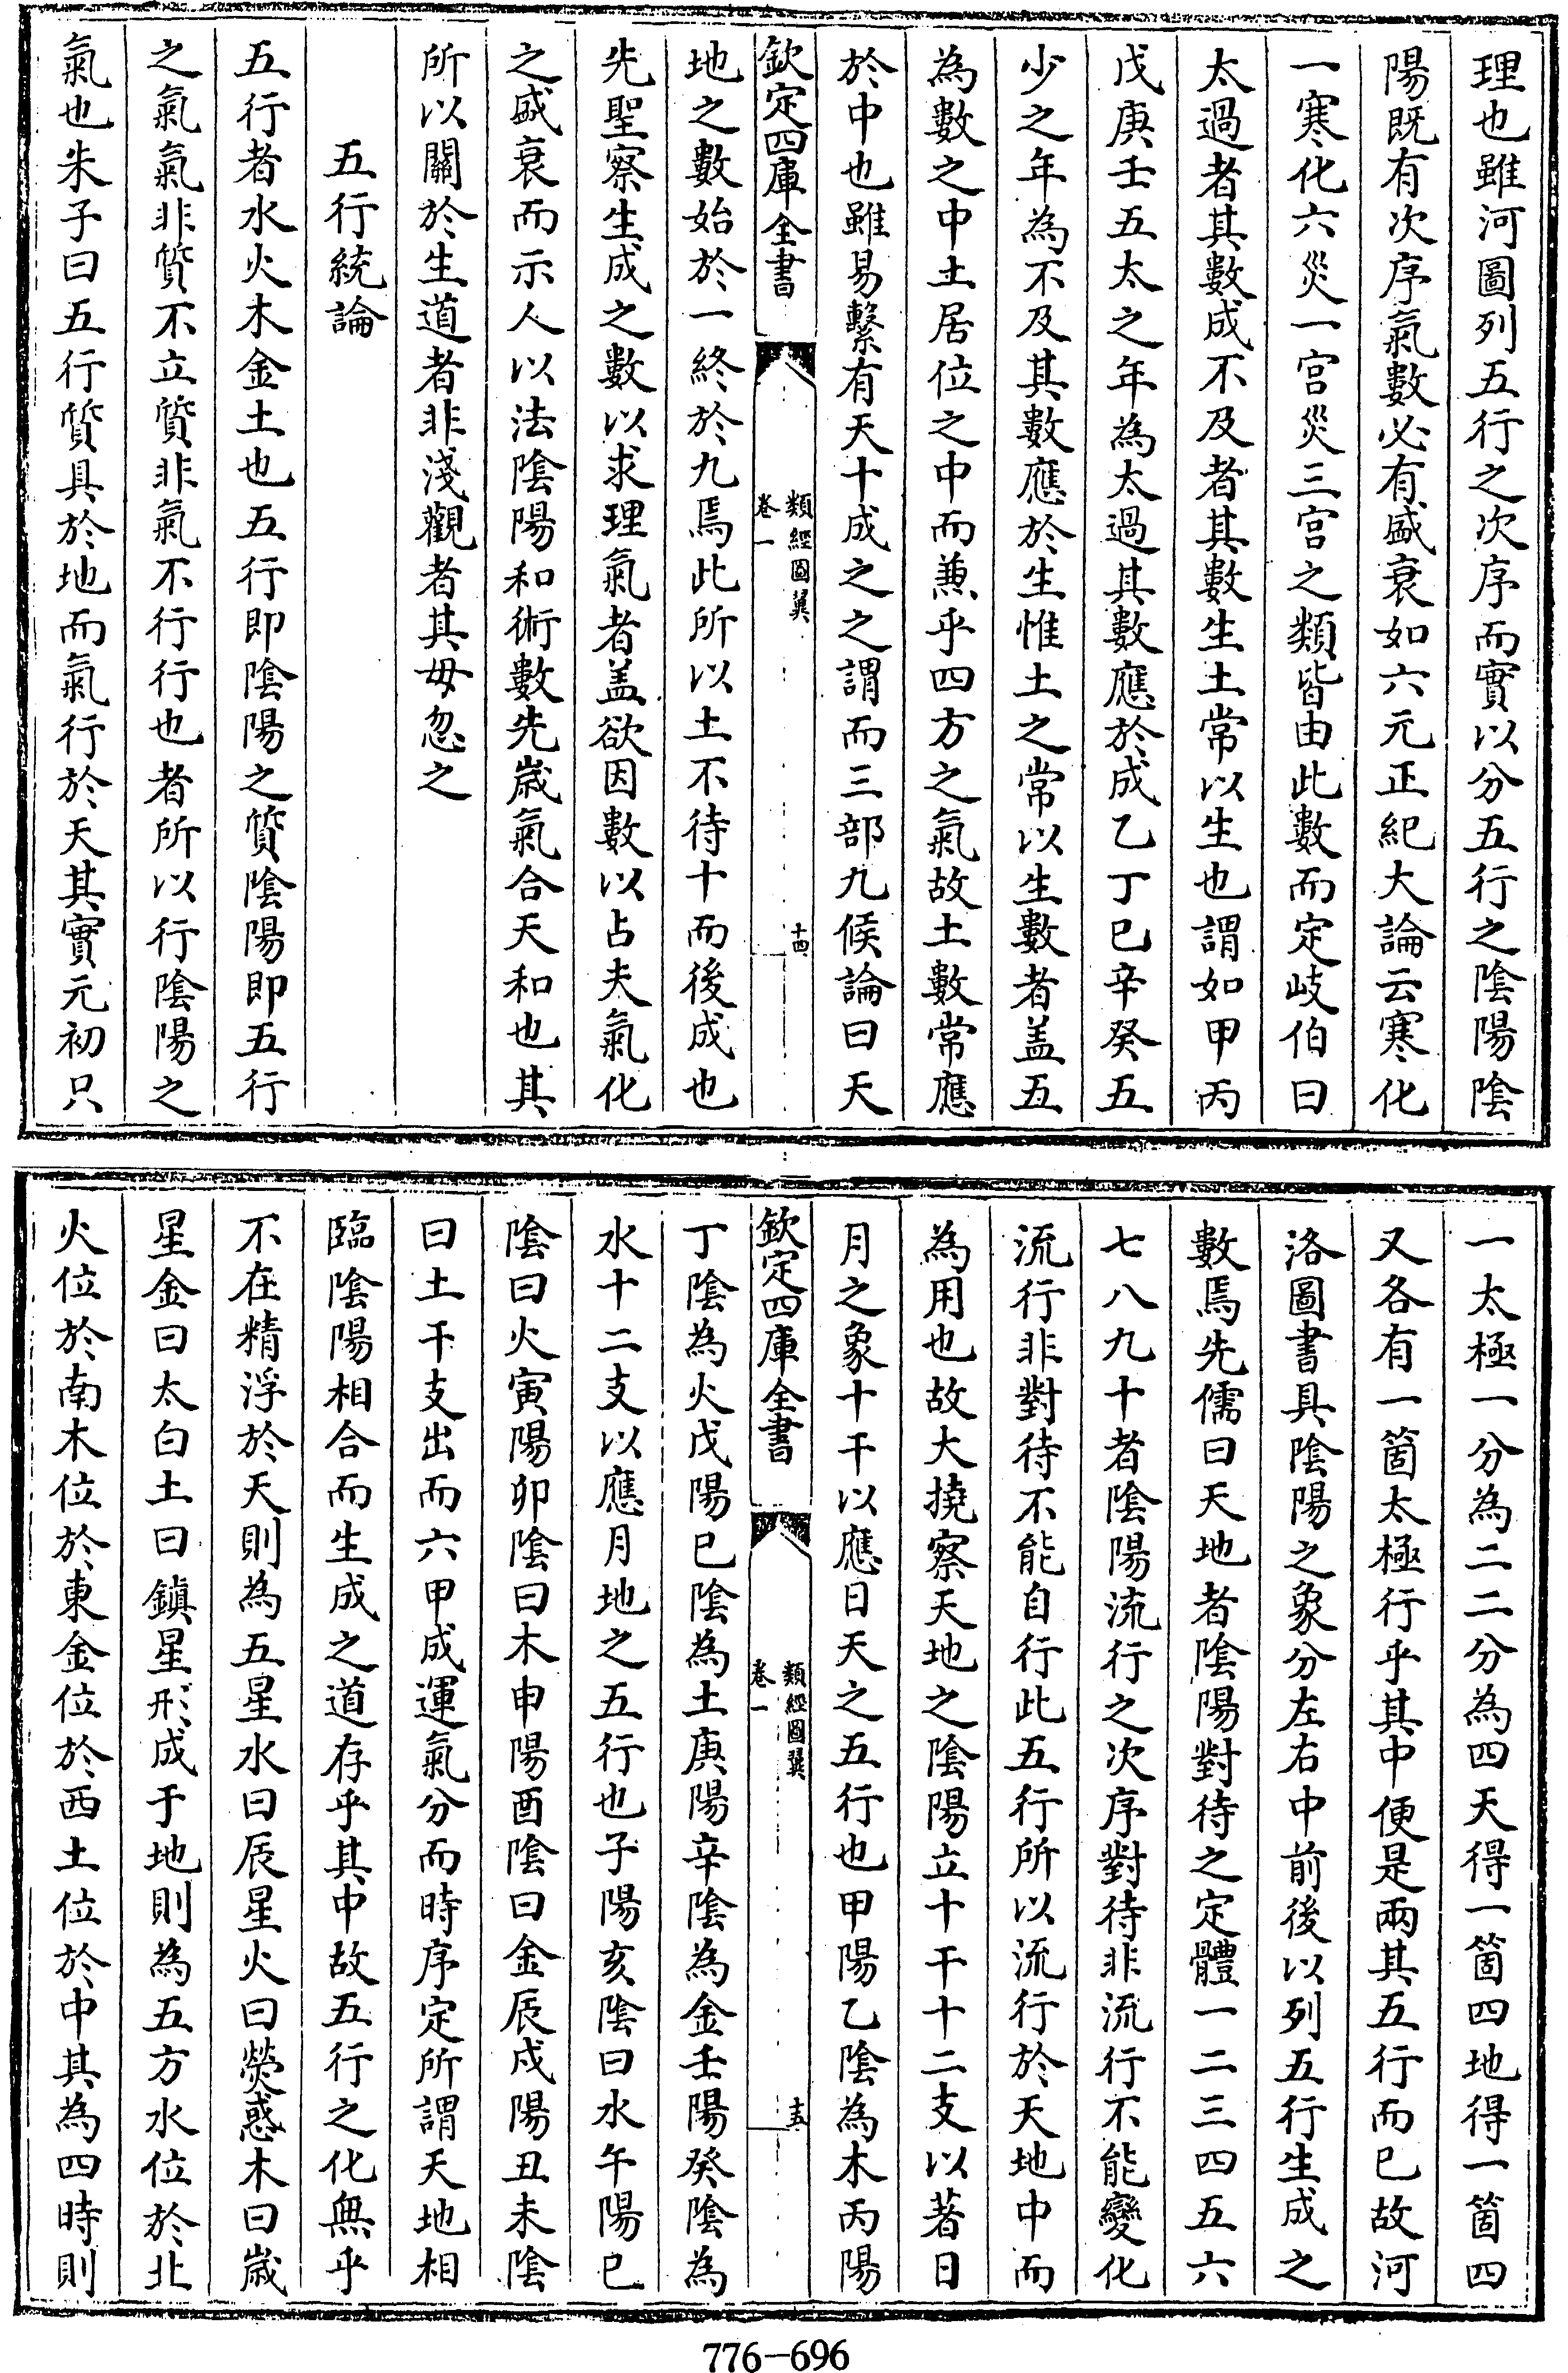 理也雖河圖列五行之次序而實以分五行之陰陽陰
陽既有次序氣數必有盛衰如六元正紀大論云寒化
一寒化六災一宮災三宮之類皆由此數而定岐伯曰
太過者其數成不及者其數生土常以生也謂如甲丙
戊庚壬五太之年為太過其數應於成乙丁巳辛癸五
少之年為不及其數應於生惟土之常以生數者盖五
為數之中土居位之中而兼乎四方之氣故土數常應
於中也雖易繫有天十成之之謂而三部九候論曰天
欽定四庫全書
類經圖翼
卷一
十四
地之數始於一終於九焉此所以土不待十而後成也
先聖察生成之數以求理氣者盖欲因數以占夫氣化
之盛衰而示人以法陰陽和術數先歲氣合天和也其
所以關於生道者非淺觀者其毋忽之
五行統論
五行者水火木金土也五行即陰陽之質陰陽即五行
之氣氣非質不立質非氣不行行也者所以行陰陽之
氣也朱子曰五行質具於地而氣行於天其實元初只
一太極一分為二二分為四天得一箇四地得一箇四
又各有一箇太極行乎其中便是兩其五行而已故河
洛圖書具陰陽之象分左右中前後以列五行生成之
數焉先儒曰天地者陰陽對待之定體一二三四五六
七八九十者陰陽流行之次序對待非流行不能變化
流行非對待不能自行此五行所以流行於天地中而
為用也故大撓察天地之陰陽立十干十二支以著日
月之象十干以應日天之五行也甲陽乙陰為木丙陽
欽定四庫全書
類經圖翼
卷一
十五
丁陰為火戊陽巳陰為土庚陽辛陰為金壬陽癸陰為
水十二支以應月地之五行也子陽亥陰曰水午陽巳
陰曰火寅陽卯陰曰木申陽酉陰曰金辰戌陽丑未陰
曰土干支出而六甲成運氣分而時序定所謂天地相
臨陰陽相合而生成之道存乎其中故五行之化無乎
不在精浮於天則為五星水曰辰星火曰熒惑木曰歲
星金曰太白土曰鎮星形成于地則為五方水位於北
火位於南木位於東金位於西土位於中其為四時則
776-696